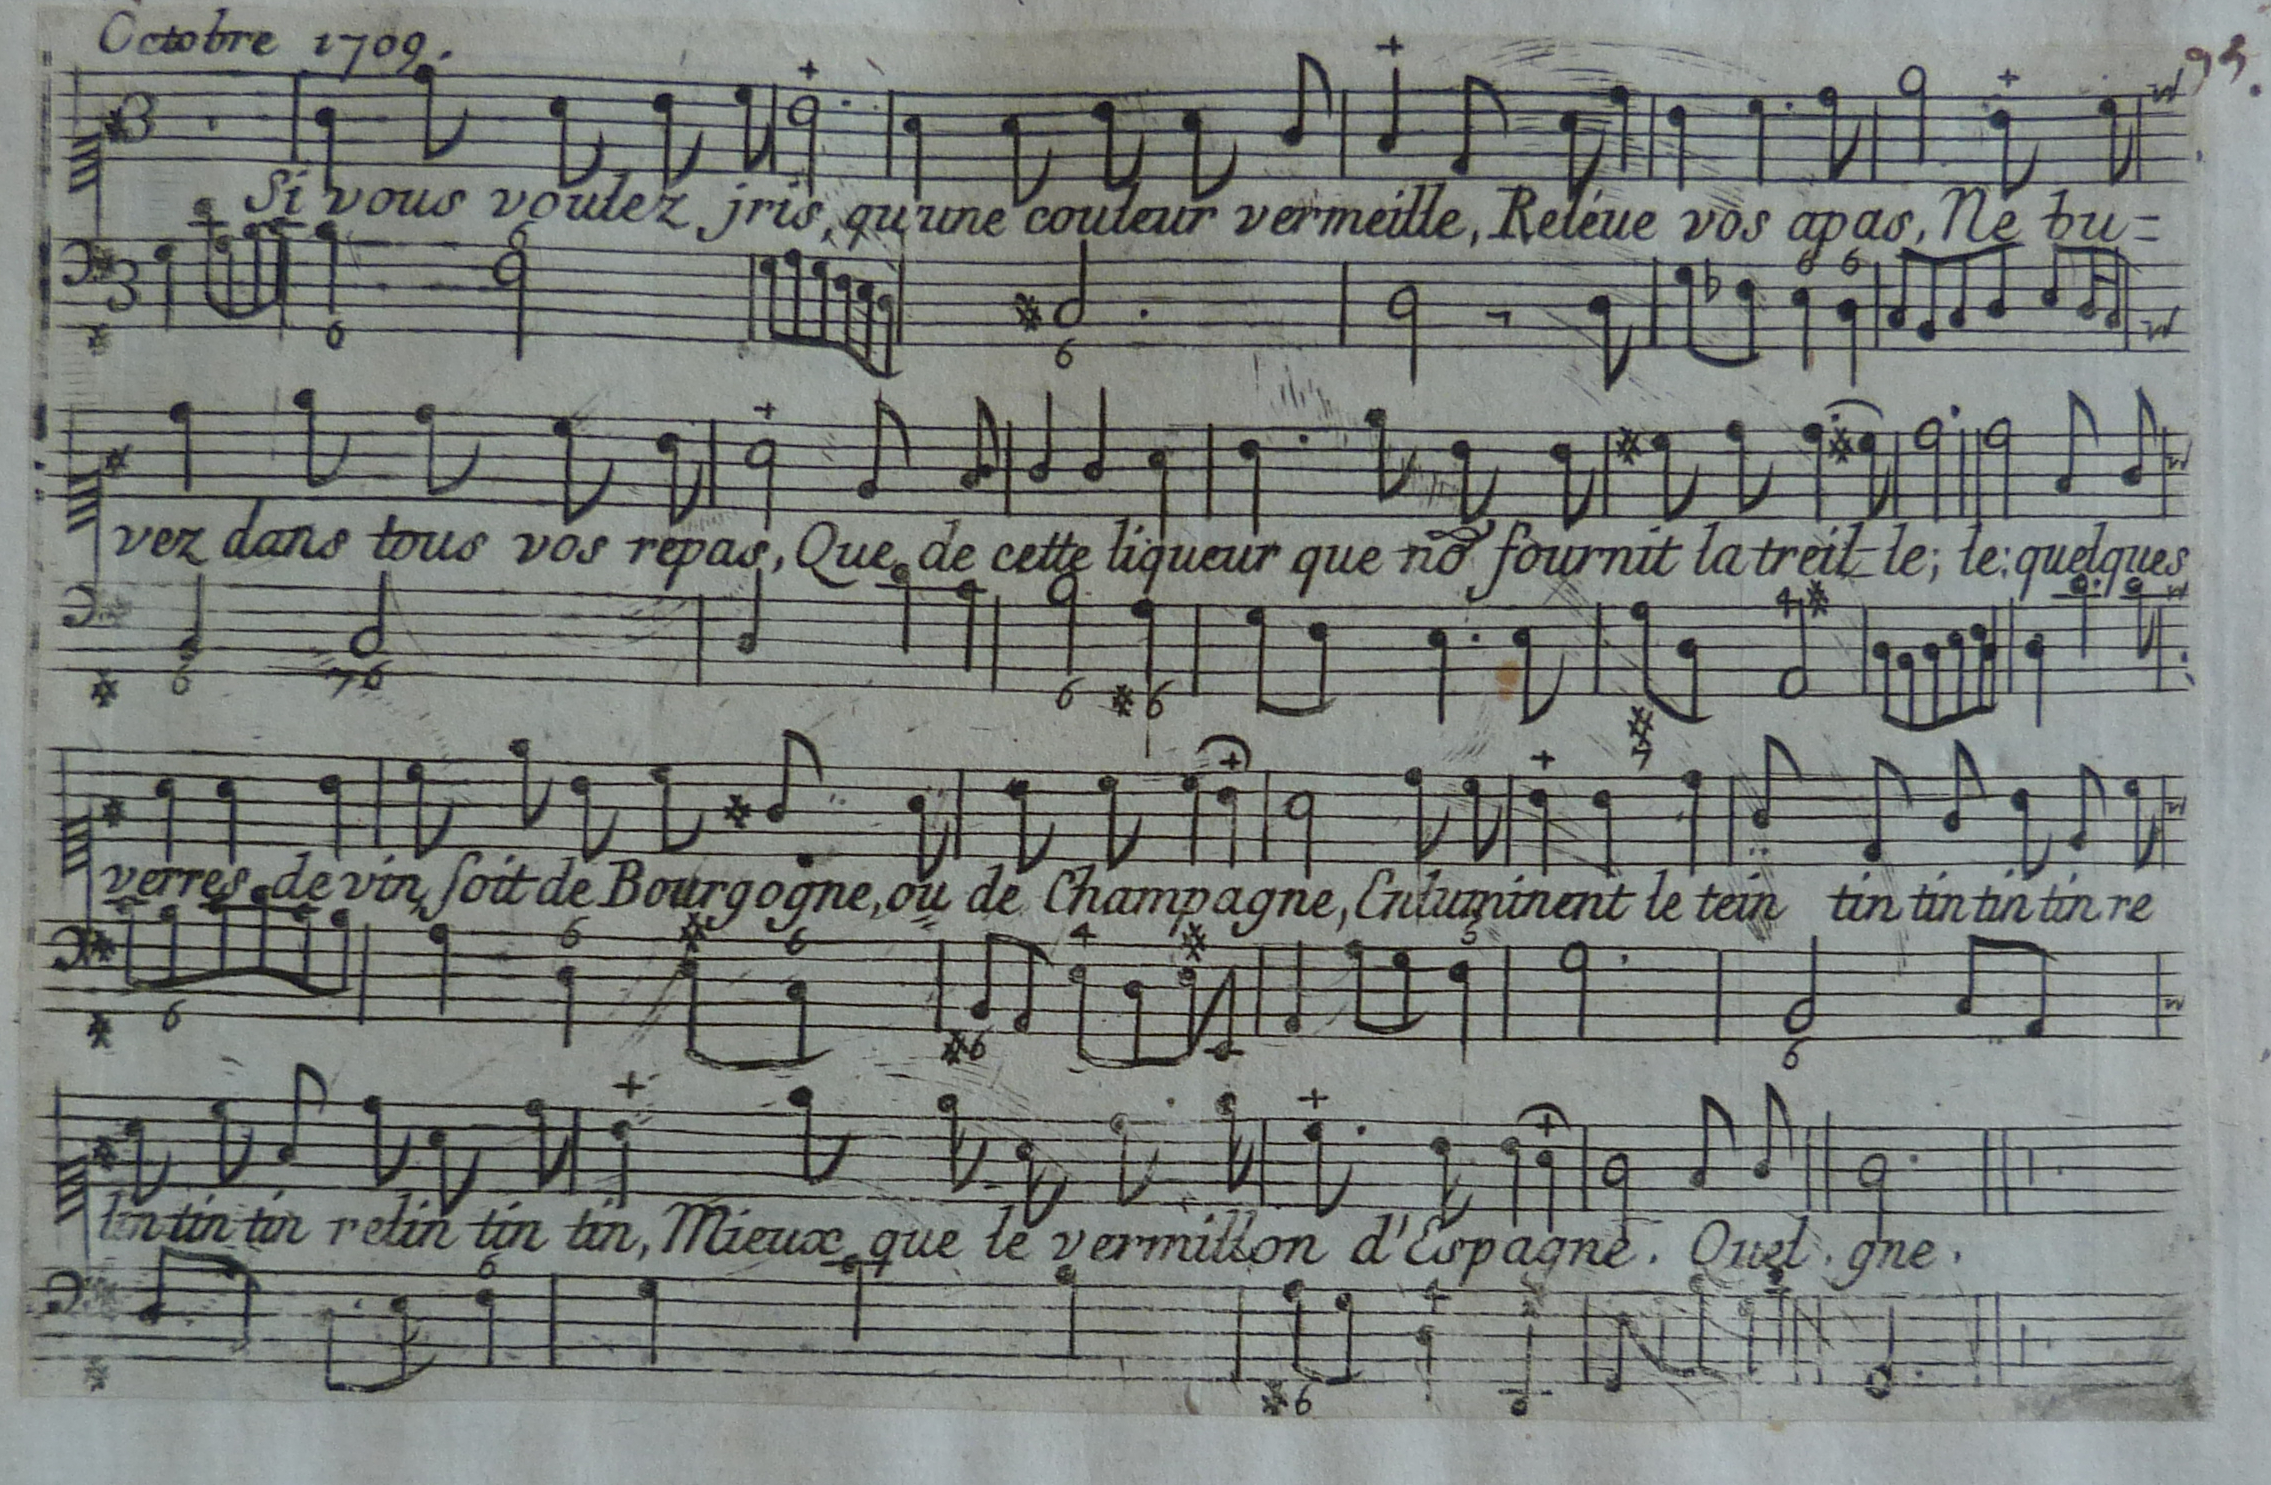 Octobre 1709.
93.
Si vous voulez jris, qu'une couleur vermeille, Reléue vos apas, Ne bu=
vez dans tous vos repas, Que de cette liqueur que no͂ fournit la treil-le; le: quelques
verres de vin, soit de Bourgogne, ou de Champagne, Enluminent le tein tin tin tin tin re
tin tin tin relin tin tin, Mieux que le vermillon d'Espagne. Quel. gne.